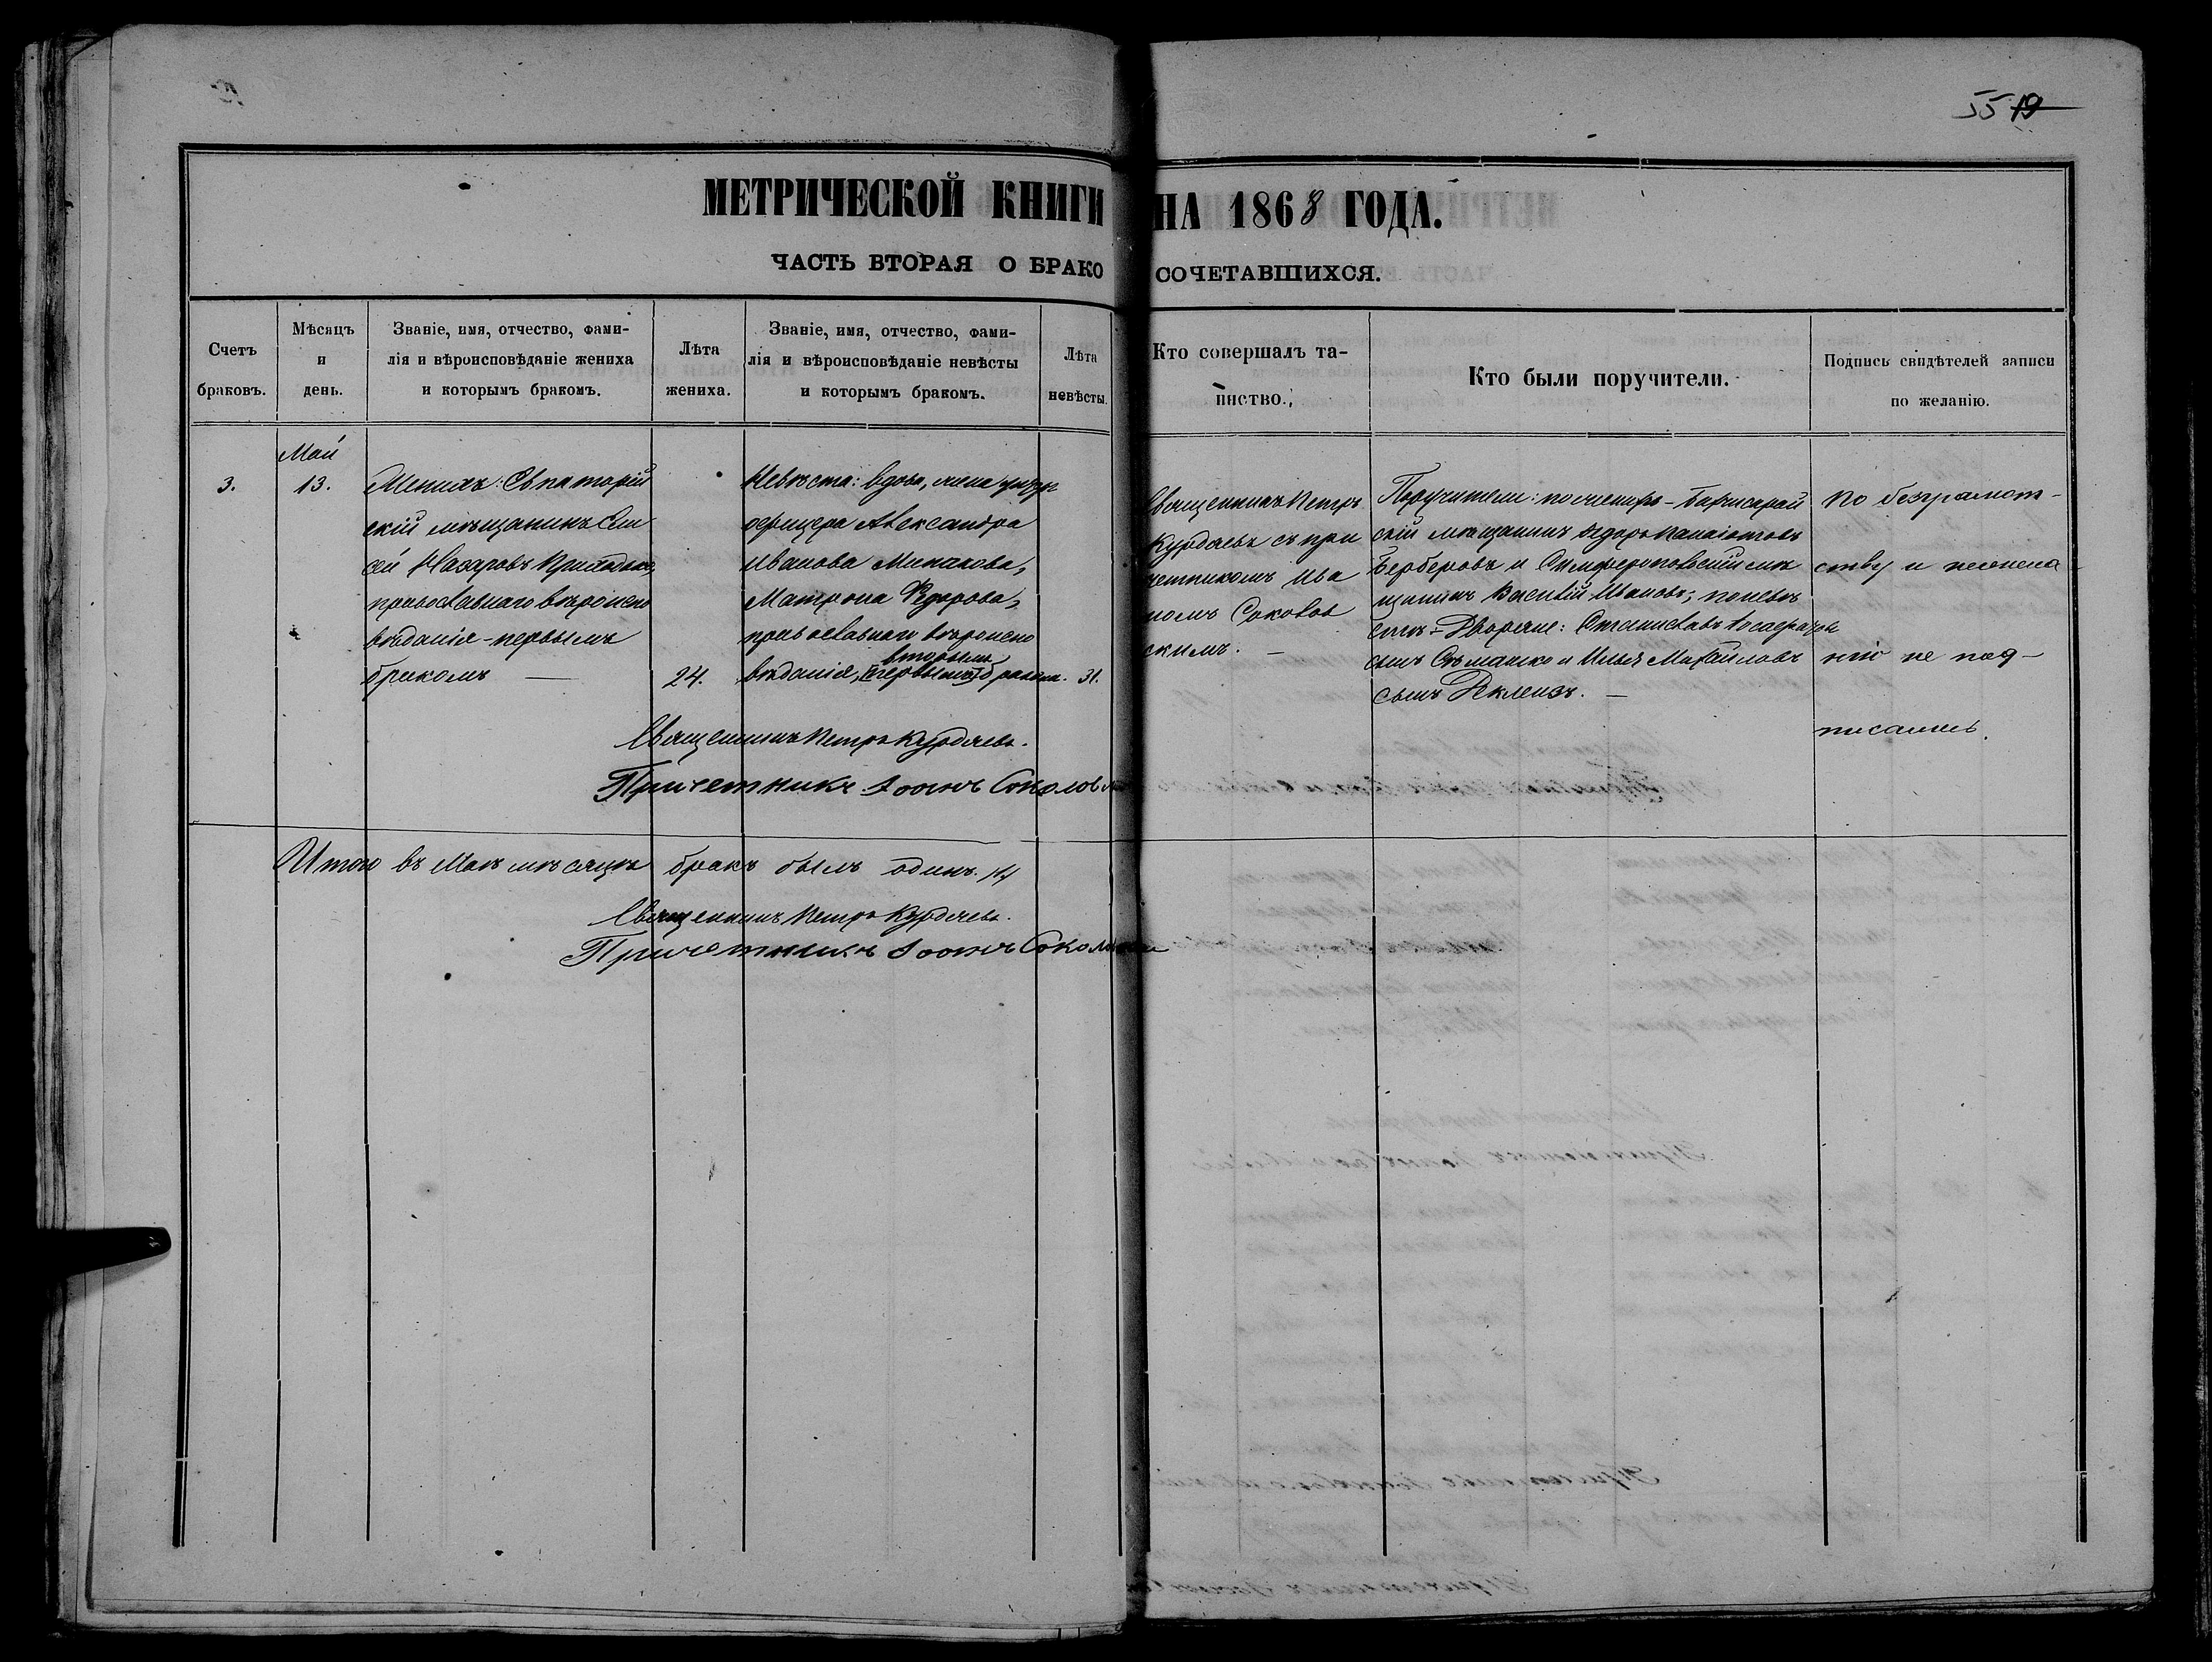 55 19
МЕТРИЧЕСКОЙ КНИГИ НА 1868 ГОДА.
ЧАСТЬ ВТОРАЯ О БРАКОСОЧЕТАВШИХСЯ.
Счетъ браковъ.
Мѣсяцъ и день.
Званіе, имя, отчество, фами-
лія и вѣроисповѣданіе жениха
и которымъ бракомъ.
Лѣта жениха.
Званіе, имя, отчество, фами-
лія и вѣроисповѣданіе невѣсты
и которымъ бракомъ.
Лѣта невѣсты.
Кто совершалъ та-
инство.
Кто были поручители.
Подпись свидѣтелей записи
по желанію.
3.
Май
13.
Женихъ: Евпаторій
скій мѣщанинъ Ели
сей Назаровъ Приходько,
православнаго вѣроиспо
вѣданія - первымъ
бракомъ —
24.
Невѣста: вдова, жена унтеръ
офицера Александра
Иванова Минакова,
Матрона Ѳедорова,
православнаго вѣроиспо
вторымъ
вѣданія, (первымъ) бракомъ.
31.
Священникъ Петръ
Курдяевъ съ при
четникомъ Ива
номъ Соколов
скимъ. —
Поручители: по женихѣ - Бахчисарай
скій мѣщанинъ Ѳедоръ Панаіотовъ
Берберовъ и Симферопольскій мѣ
щанинъ Василій Ивановъ; по невѣ
стѣ - Дворяне: Станиславъ
сынъ и Илья Михайловъ
сынъ —
По безграмот-
ству и
не под-
писались.
Священникъ Петръ Курдяевъ.
Причетникъ Іоаннъ Соколов
Итого въ Маѣ мѣсяцѣ бракъ былъ одинъ. /1/
Священникъ Петръ Курдяевъ.
Причетникъ Іоаннъ Соколовскій